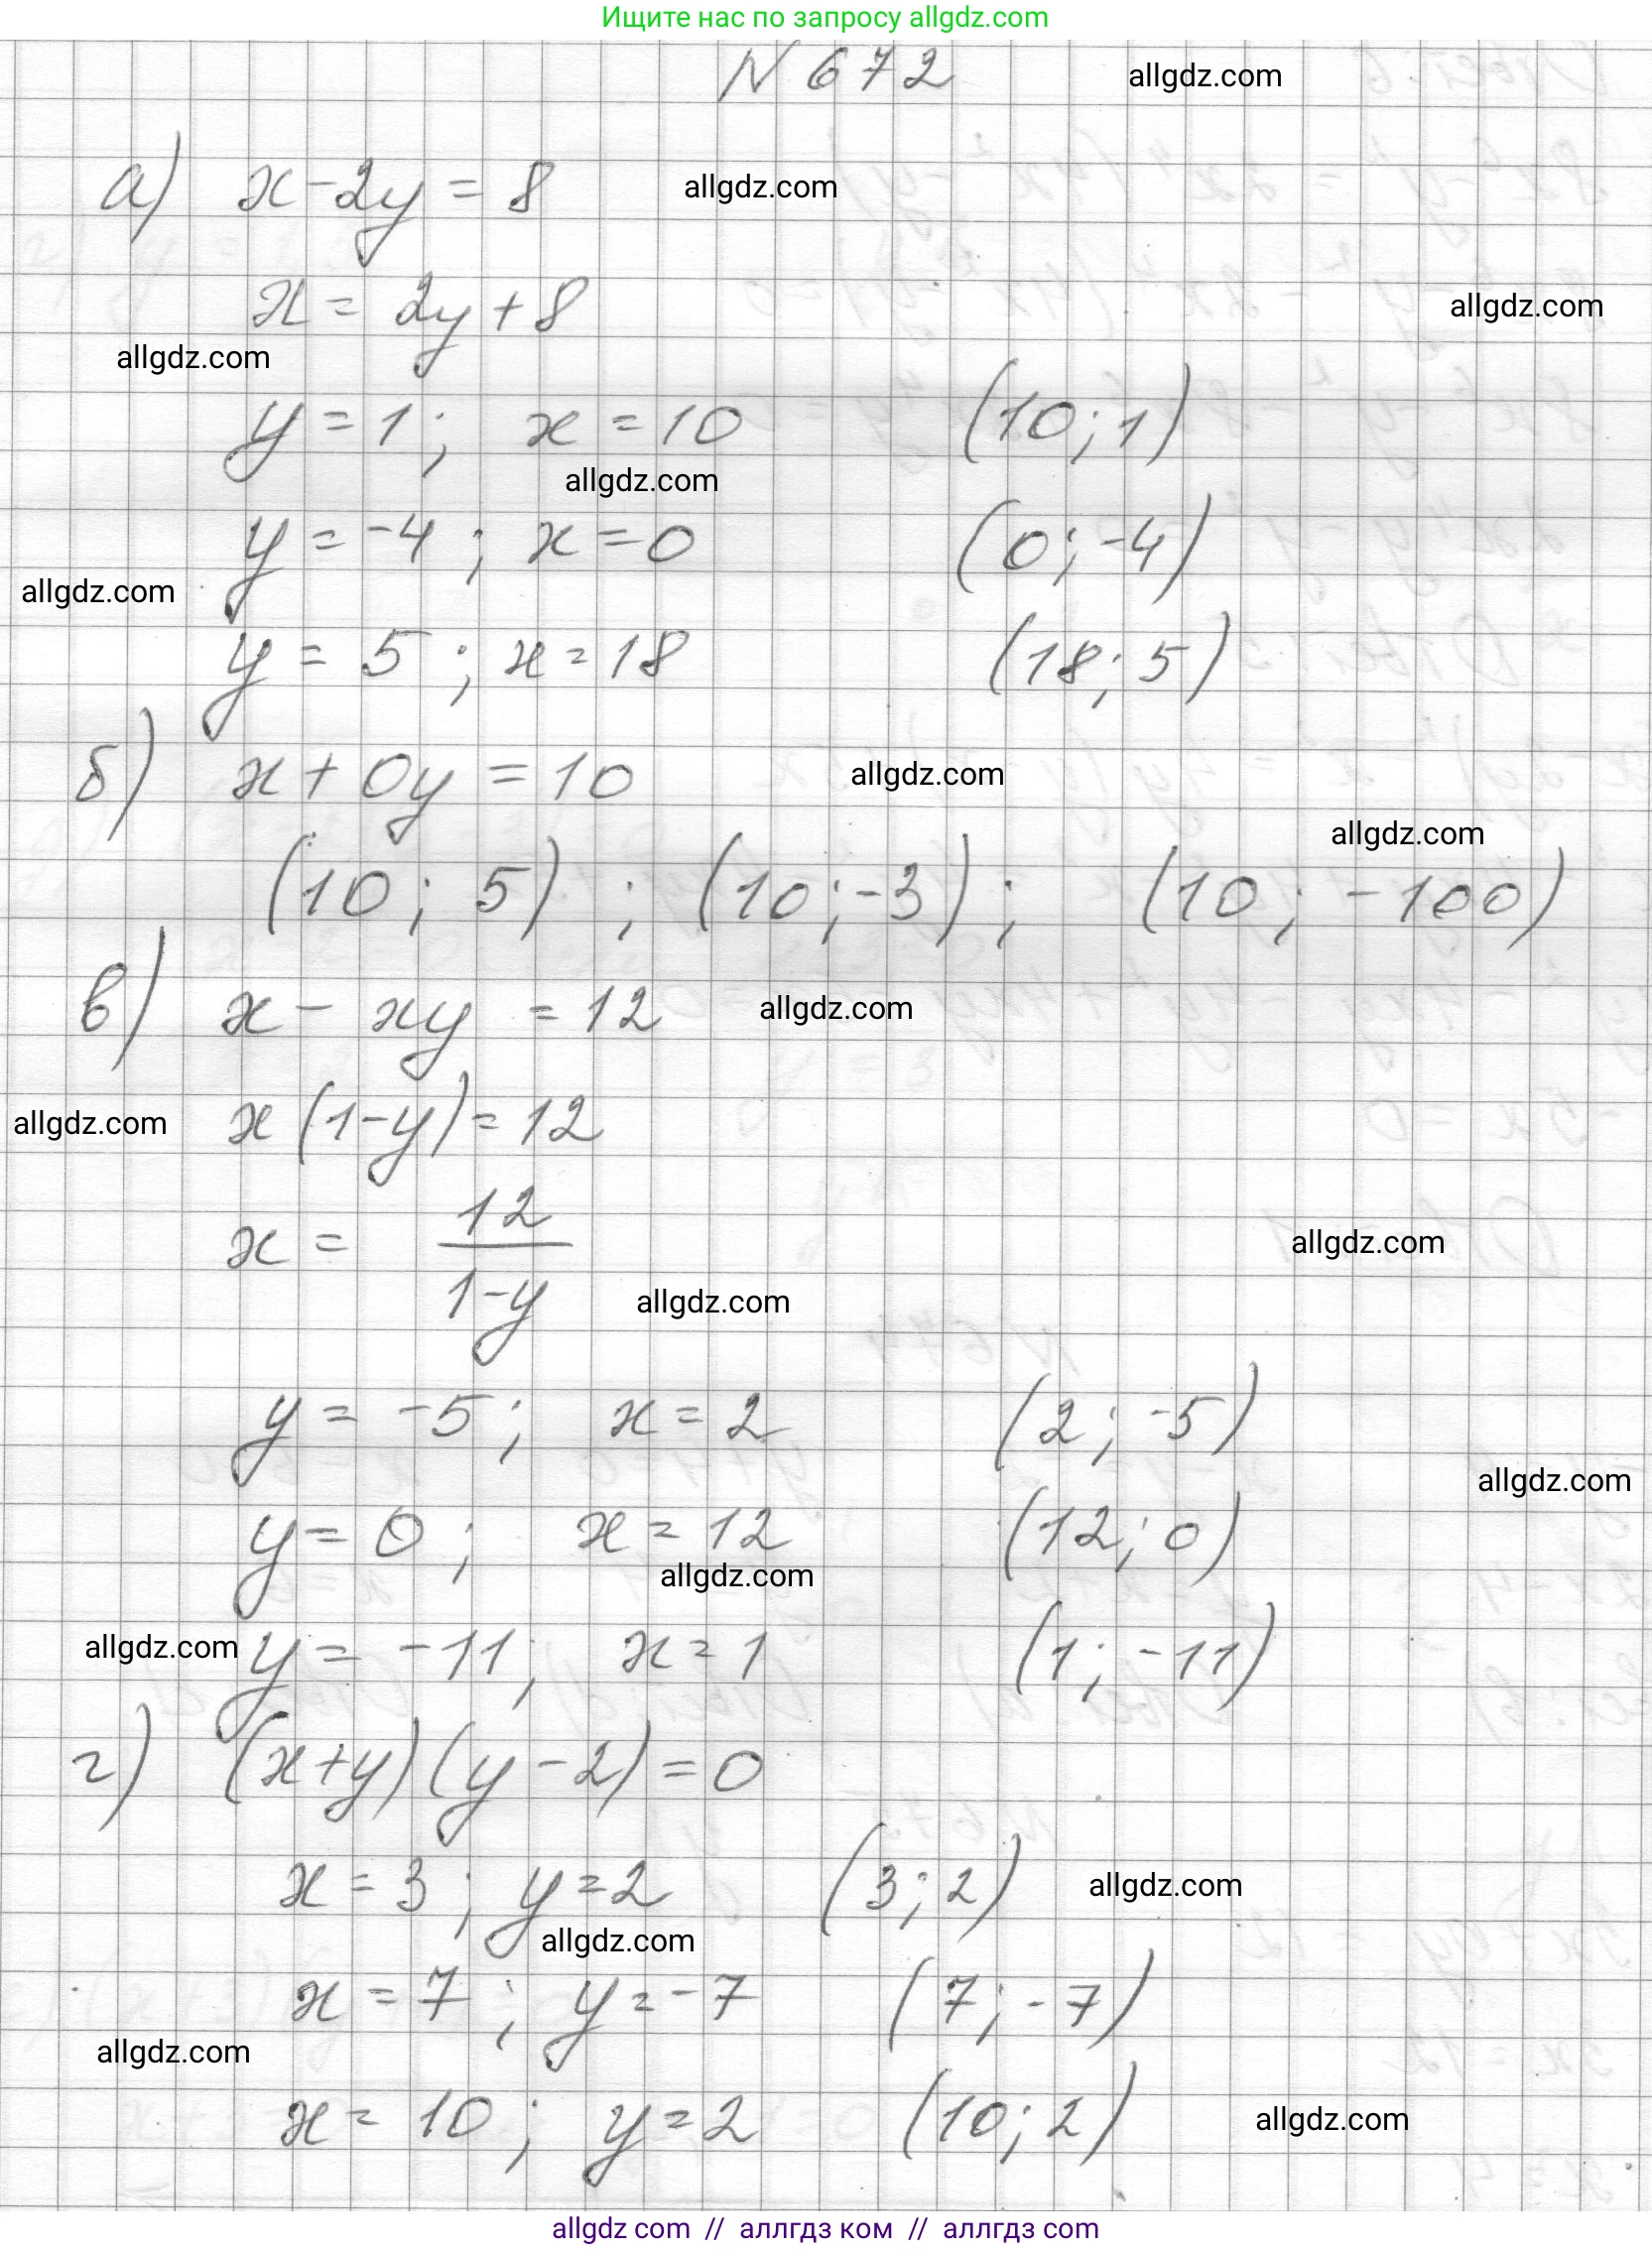 Ищите нас по запросу allgdz.com
N 672
allgdz.com
а) x-2y = 8
allgdz.com
x = 2y + 8
allgdz.com
allgdz.com
y = 1; x = 10 (10; 1)
allgdz.com
y = -4; x = 0 (0; -4)
allgdz.com
y = 5; x = 18 (18; 5)
б) x + 0y = 10
allgdz.com
allgdz.com
(10; 5); (10; -3); (10; -100)
в) x - xy = 12
allgdz.com
allgdz.com
x(1-y) = 12
x = 12/(1-y)
allgdz.com
allgdz.com
y = -5; x = 2 (2; -5)
allgdz.com
y = 0; x = 12 (12; 0)
allgdz.com
allgdz.com
y = -11; x = 1 (1; -11)
г) (x+y)(y-2) = 0
x = 3; y = 2 (3; 2)
allgdz.com
allgdz.com
x = 7; y = -7 (7; -7)
allgdz.com
x = 10; y = 2 (10; 2)
allgdz.com
allgdz com // аллгдз ком // аллгдз com